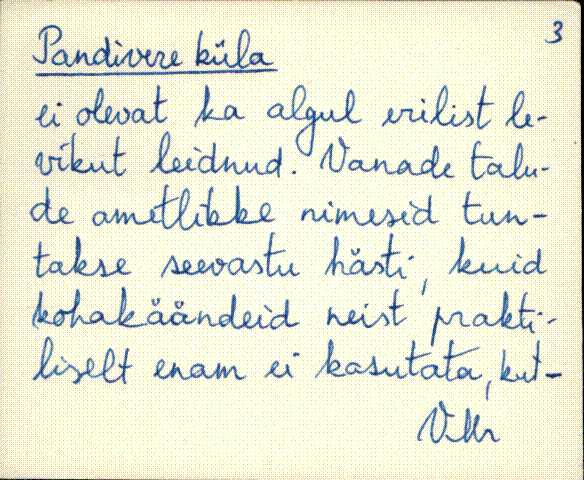 3
Pandivere küla
ei olevat ka algul erilist le-
vikut leidnud. Vanade talu-
de ametlikke nimesid tun-
takse seevastu hästi, kuid
kohakäändeid neist prakti-
liselt enam ei kasutata, kut-